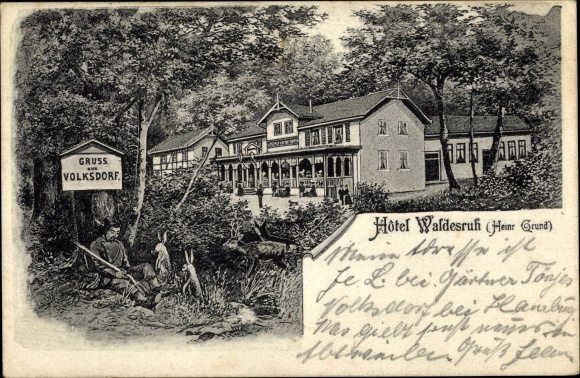 GRUSS
aus
VOLKSDORF.
Hôtel Waldesruh (Heinr Grund)
Meine Adresse ist
Fr. L. bei Gärtner Tönjes
Volksdorf bei Hamburg
Was giebt sonst neues in
Gruß